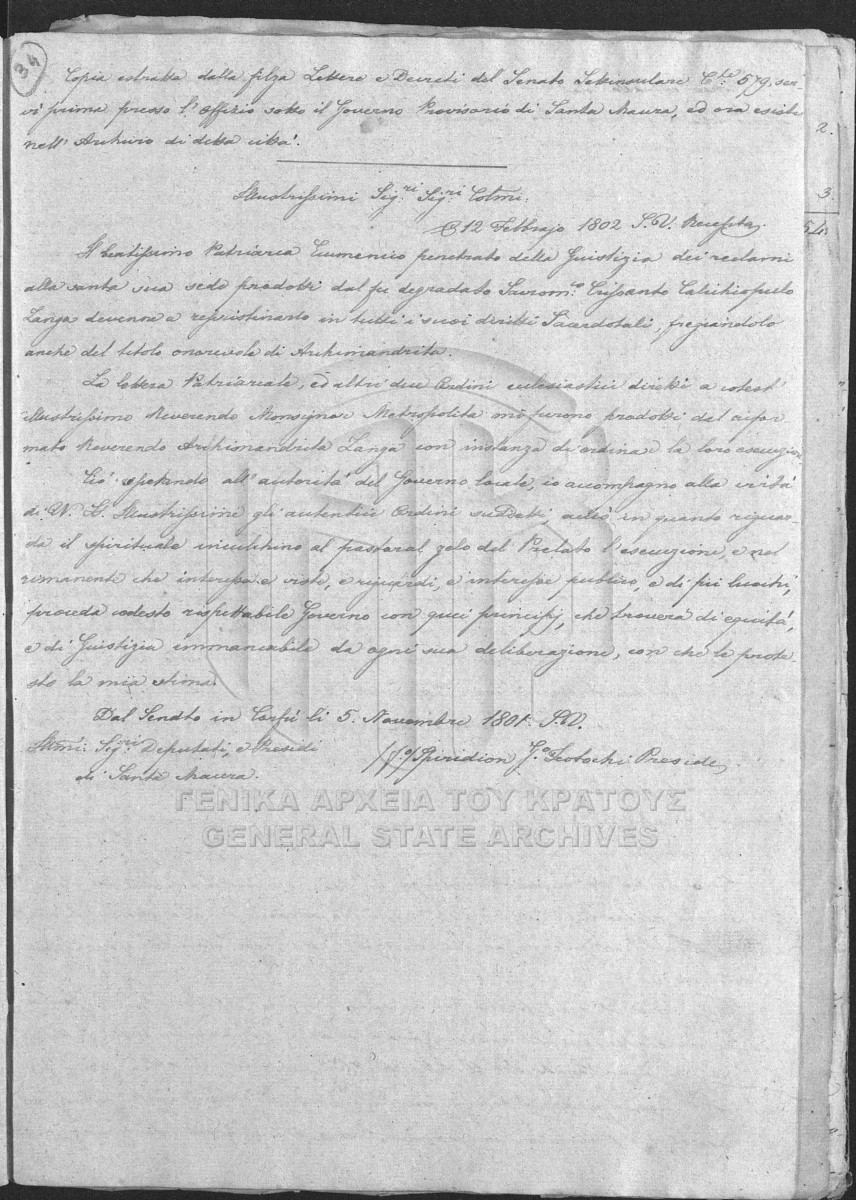 34
Copia estratta dalla filza Lettere e Decreti del Senato Settinsulare C.te 579, ser-
vi prima presso l'Offizio sotto il Governo Provvisorio di Santa Maura, ed ora esiste
nell'Archivio di detta città.
2.
3.
54
Illustrissimi Sig.ri Sig.ri Colmi:
12 Febbrajo 1802 S.V. Recepta
Il beatissimo Patriarca Ecumenico penetrato della Giustizia dei reclami
alla santa sua sede prodotti dal fu degradato Crisanto Calichiopulo
Langa devenne a repristinarlo in tutti i suoi diritti Sacerdotali, fregiandolo
anche del titolo onorevole di Archimandrita.
La lettera Patriarcale, ed altri due Ordini eclesiastici diretti a cotest'
illustrissimo Reverendo Monsignor Metropolita mi furono prodotti dal rifor-
mato Reverendo Archimandrita Langa con instanza di ordinar la loro esecuzion
Ciò spetando all'autorità del Governo locale, io accompagno alla virtù
di V. S. Illustrissime gli autentici Ordini suddetti, acciò in quanto riguar-
da il spirituale inculchino al pastoral zelo del Prelato l'esecuzione, e nel
rimanente che interessa e viste, e riguardi, e interesse publico, e di più luochi,
proceda codesto rispettabile Governo con quei principj, che troverà di equità,
e di Giustizia immancabile da ogni sua deliberazione, con che le prote-
sto la mia stima.
Dal Senato in Corfù li 5. Novembre 1801. S.V.
Illmi: Sig.ri Deputati, e Presidi
di Santa Maura.
Spiridion G.o Teotochi Preside
ΓΕΝΙΚΑ ΑΡΧΕΙΑ ΤΟΥ ΚΡΑΤΟΥΣ
GENERAL STATE ARCHIVES